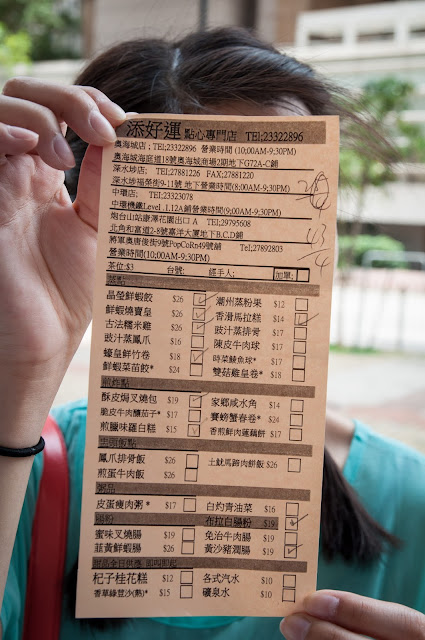 添好運 點心專門店 TEL;23322896
奧海城店; TEL;23322896 營業時間 (10:00AM-9;30PM)
奧海城海庭道18號奧海城商場2期地下G72A-C舖
深水埗店; TEL:27881226 FAX;27881220
深水埗福榮街9-11號 地下營業時間(8:00AM-9:30PM)
中環店; TEL;23323078
中環機鐵Level 1,12A舖營業時間(9;00AM-9;30PM)
炮台山站康澤花園出口 A TEL;29795608
北角和富道2-8號嘉洋大廈地下B,C,D舖
將軍奧唐俊街9號PopCoRn49號舖 Tel;27892803
營業時間 (10:00AM-9;30PM)
茶位:$3 台號; 經手人; 加單:
蒸點
晶瑩鮮蝦餃 $26 潮州蒸粉果 $12
鮮蝦燒賣皇 $26 香滑馬拉糕 $14
古法糯米雞 $26 豉汁蒸排骨 $17
豉汁蒸鳳爪 $16 陳皮牛肉球 $17
蠔皇鮮竹卷 $18 時菜鯪魚球* $17
鮮蝦菜苗餃* $24 雙菇雞皇卷* $18
煎炸點
酥皮焗叉燒包 $19 家鄉咸水角 $14
脆皮牛肉釀茄子* $17 賽螃蟹春卷* $24
煎臘味蘿白糕 $15 香煎鮮肉蓮藕餅 $17
蒸飯點
鳳爪排骨飯 $26 土魷馬蹄肉餅飯 $26
煎蛋牛肉飯 $26
粥品
皮蛋瘦肉粥 * $17 白灼青油菜 $16
腸粉 布拉白腸粉 $19
蜜味叉燒腸 $19 免治牛肉腸 $19
韮黃鮮蝦腸 $20 黃沙豬潤腸 $19
杞子桂花糕 $12 各式汽水 $10
香草綠荳沙(熱)* $15 礦泉水 $10